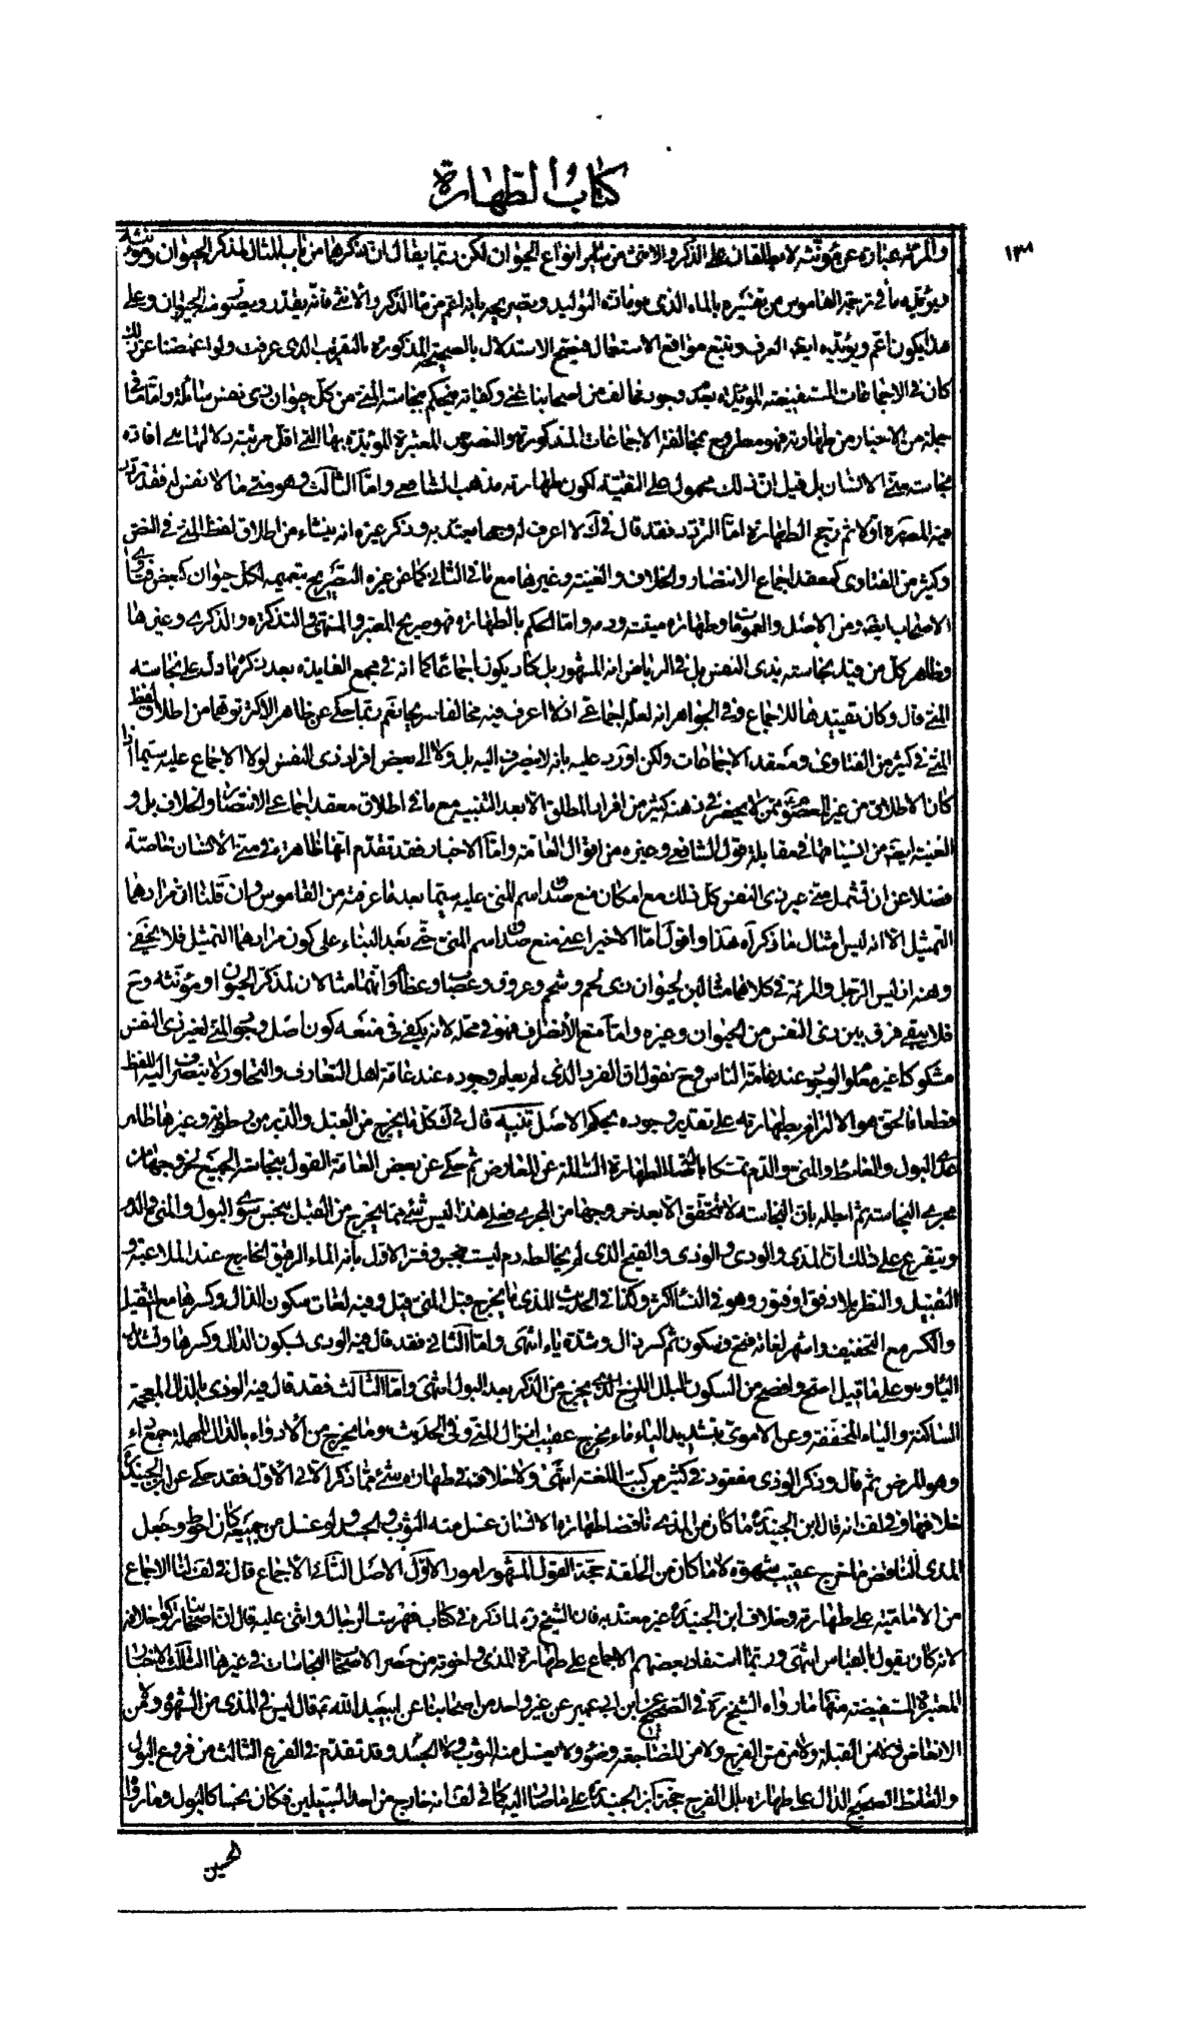 كتاب الطهارة
١٣٨
والمرئة عبارة عن مؤنثه لا يطلقان على الذكر والانثى من سائر انواع الحيوان لكن ربما يقال ان ذكرهما من باب المثال لمذكر الحيوان ومؤنثه
ويؤيده ما في ترجمة القاموس من تفسيره بالماء الذي هو مادة التوليد وتصريحه بانه اعم من ماء الذكر والانثى فانه يقذر ويستوي فيه الحيوان وعلى
هذا يكون اعم ويؤيده ايضا العرف وتتبع مواقع الاستعمال فيتضح الاستدلال بالصحيحة المذكورة بالتقريب الذي عرفت ولو اغمضنا عن ذلك
كان في الاجماعات المستفيضة المؤيدة بعدم وجود مخالف من اصحابنا غنى وكفاية فيحكم بنجاسة المني من كل حيوان ذي نفس سائلة واما ما في
جملة من الاخبار من طهارته فهو مطروح بمخالفة الاجماعات المذكورة والنصوص المعتبرة المؤيدة بها التي اقل مرتبة دلالتها هي افادة
نجاسة مني الانسان بل قيل ان ذلك محمول على التقية لكون طهارته مذهب الشافعي واما الثالث وهو مني ما لا نفس له فقد تردد
فيه المعتبر اولا ثم رجح الطهارة اما التردد فقد قال في ك لا اعرف له وجها يعتد به وذكر غيره انه ينشاء من اطلاق لفظ المني في النص
وكثير من الفتاوى كمعقد اجماع الانتصار والخلاف والغنية وغيرها مع ما في الثاني كما عن غيره التصريح بتعميمه لكل حيوان كبعض فتاوى
الاصحاب ايضا ومن الاصل والعمومات وطهارة ميتته ودمه واما الحكم بالطهارة فهو صريح المعتبر والمنتهى والتذكرة والذكرى وغيرها
وظاهر كل من قيد نجاسته بذي النفس بل في الرياض انه المشهور بل كاد يكون اجماعا كما انه في مجمع الفايدة بعد ذكر ما دل على نجاسة
المني قال وكان تقييدها للاجماع وفي الجواهر انه لعله اجماعي اذ لا اعرف فيه مخالفا صريحا نعم ربما حكي عن ظاهر الاكثر توهما من اطلاق لفظ
المني في كثير من الفتاوى ومعقد الاجماعات ولكن اورد عليه بانه لا ينصرف اليه بل ولا الى بعض افراد ذي النفس لولا الاجماع عليه سيما اذا
كان الاطلاق من غير المعصوم ممن لا يحضر في ذهنه كثير من افراد المطلق الا بعد التنبيه مع ما في اطلاق معقد اجماعي الانتصار والخلاف بل و
الغنية ايضا من انسياقها في مقابلة قول الشافعي وغيره من اقوال العامة واما الاخبار فقد تقدم انها ظاهرة في مني الانسان خاصة
فضلا عن ان تشمل مني غير ذي النفس كل ذلك مع امكان منع صدق اسم المني عليه سيما بعد ما عرفته من القاموس وان قلنا ان مرادهما
التمثيل الا انه ليس امثال ما ذكراه هذا واقول اما الاخير اعني منع صدق اسم المني حتى بعد البناء على كون مرادهما التمثيل فلا يخفى
وهنه اذ ليس الرجل والمرئة في كلامهما مثالين لحيوان ذي لحم وشحم وعروق وعصب وعظام وانما مثالان لمذكر الحيوان او مؤنثه وح
فلا يبقى فرق بين ذي النفس من الحيوان وغيره واما منع الانصراف فهو في محله لانه يكفي في منعه كون اصل وجود المني لغير ذي النفس
مشكوكا غير معلوم الوجود عند عامة الناس وح نقول ان الفرد الذي لم يعلم وجوده عند عامة اهل التعارف والتحاور لا ينصرف اليه اللفظ
قطعا فالحق هو الالتزام بطهارته على تقدير وجوده بحكم الاصل تنبيه قال في ك كل ما يخرج من القبل والدبر من رطوبة وغيرها طاهر
عدا البول والغائط والمني والدم تمسكا باقتضاء الطهارة السالمة عن المعارض ثم حكى عن بعض العامة القول بنجاسة الجميع لخروجها من
مجرى النجاسة ثم اجابه بان النجاسة لا تتحقق الا بعد خروجها من المجرى فعلى هذا ليس شيء مما يخرج من القبل ينجس سوى البول والمني والدم
ويتفرع على ذلك ان المذي والودي والوذي والقيح الذي لم يخالطه دم ليست بنجس وفسر الاول بانه الماء الرقيق الخارج عند الملاعبة و
التقبيل والنظر بلا دفق وفتور وهو في النساء اكثر وكذا في الحديث المذي ما يخرج قبل المني قيل وفيه لغات سكون الذال وكسرها مع التثقيل
والكسر مع التخفيف واشهر لغاته فتح وسكون ثم كسر ذال وشدة ياء انتهى واما الثاني فقد قال فيه الودي بسكون الدال وكسرها وتشديد
الياء وهو على ما قيل اصح وافصح من السكون البلل اللزج الذي يخرج من الذكر بعد البول انتهى واما الثالث فقد قال فيه الوذي بالذال المعجمة
الساكنة والياء المخففة وعن الاموي بتشديد الياء ماء يخرج عقيب انزال المني وفي الحديث وما يخرج من الادواء بالدال المهملة جمع داء
وهو المرض ثم قال وذكر الوذي مفقود في كثير من كتب اللغة انتهى ولا خلاف في طهارة شيء مما ذكر الا في الاول فقد حكي عن ابن الجنيد
خلافها وفي لف انه قال ابن الجنيد ما كان من المذي ناقضا طهارة الانسان غسل منه الثوب والجسد ولو غسل من جميعه كان احوط وجعل
المذي الناقض ما خرج عقيب شهوة لا ما كان من الخلقة حجة القول المشهور امور الاول الاصل الثاني الاجماع قال في لف لنا الاجماع
من الامامية على طهارته وخلاف ابن الجنيد غير معتد به فان الشيخ ره لما ذكره في كتاب فهرست الرجال واثنى عليه قال ان اصحابنا تركوا خلافه
لانه كان يقول بالقياس انتهى وربما استفاد بعضهم الاجماع على طهارة المذي واخوته من حصر الاصحاب النجاسات في غيرها الثالث الاخبار
المعتبرة المستفيضة منها ما رواه الشيخ ره في الصحيح عن ابن ابي عمير عن غير واحد من اصحابنا عن ابي عبد الله ع قال ليس في المذي من الشهوة ولا من
الانعاظ ولا من القبلة ولا من مس الفرج ولا من المضاجعة وضوء ولا يغسل منه الثوب ولا الجسد وقد تقدم في الفرع الثالث من فروع البول
والغائط الصحيح الدال على طهارة بلل الفرج حجة ابن الجنيد على ما صار اليه كما في لف انه خارج من احد السبيلين فكان نجسا كالبول وما رواه
الحسين